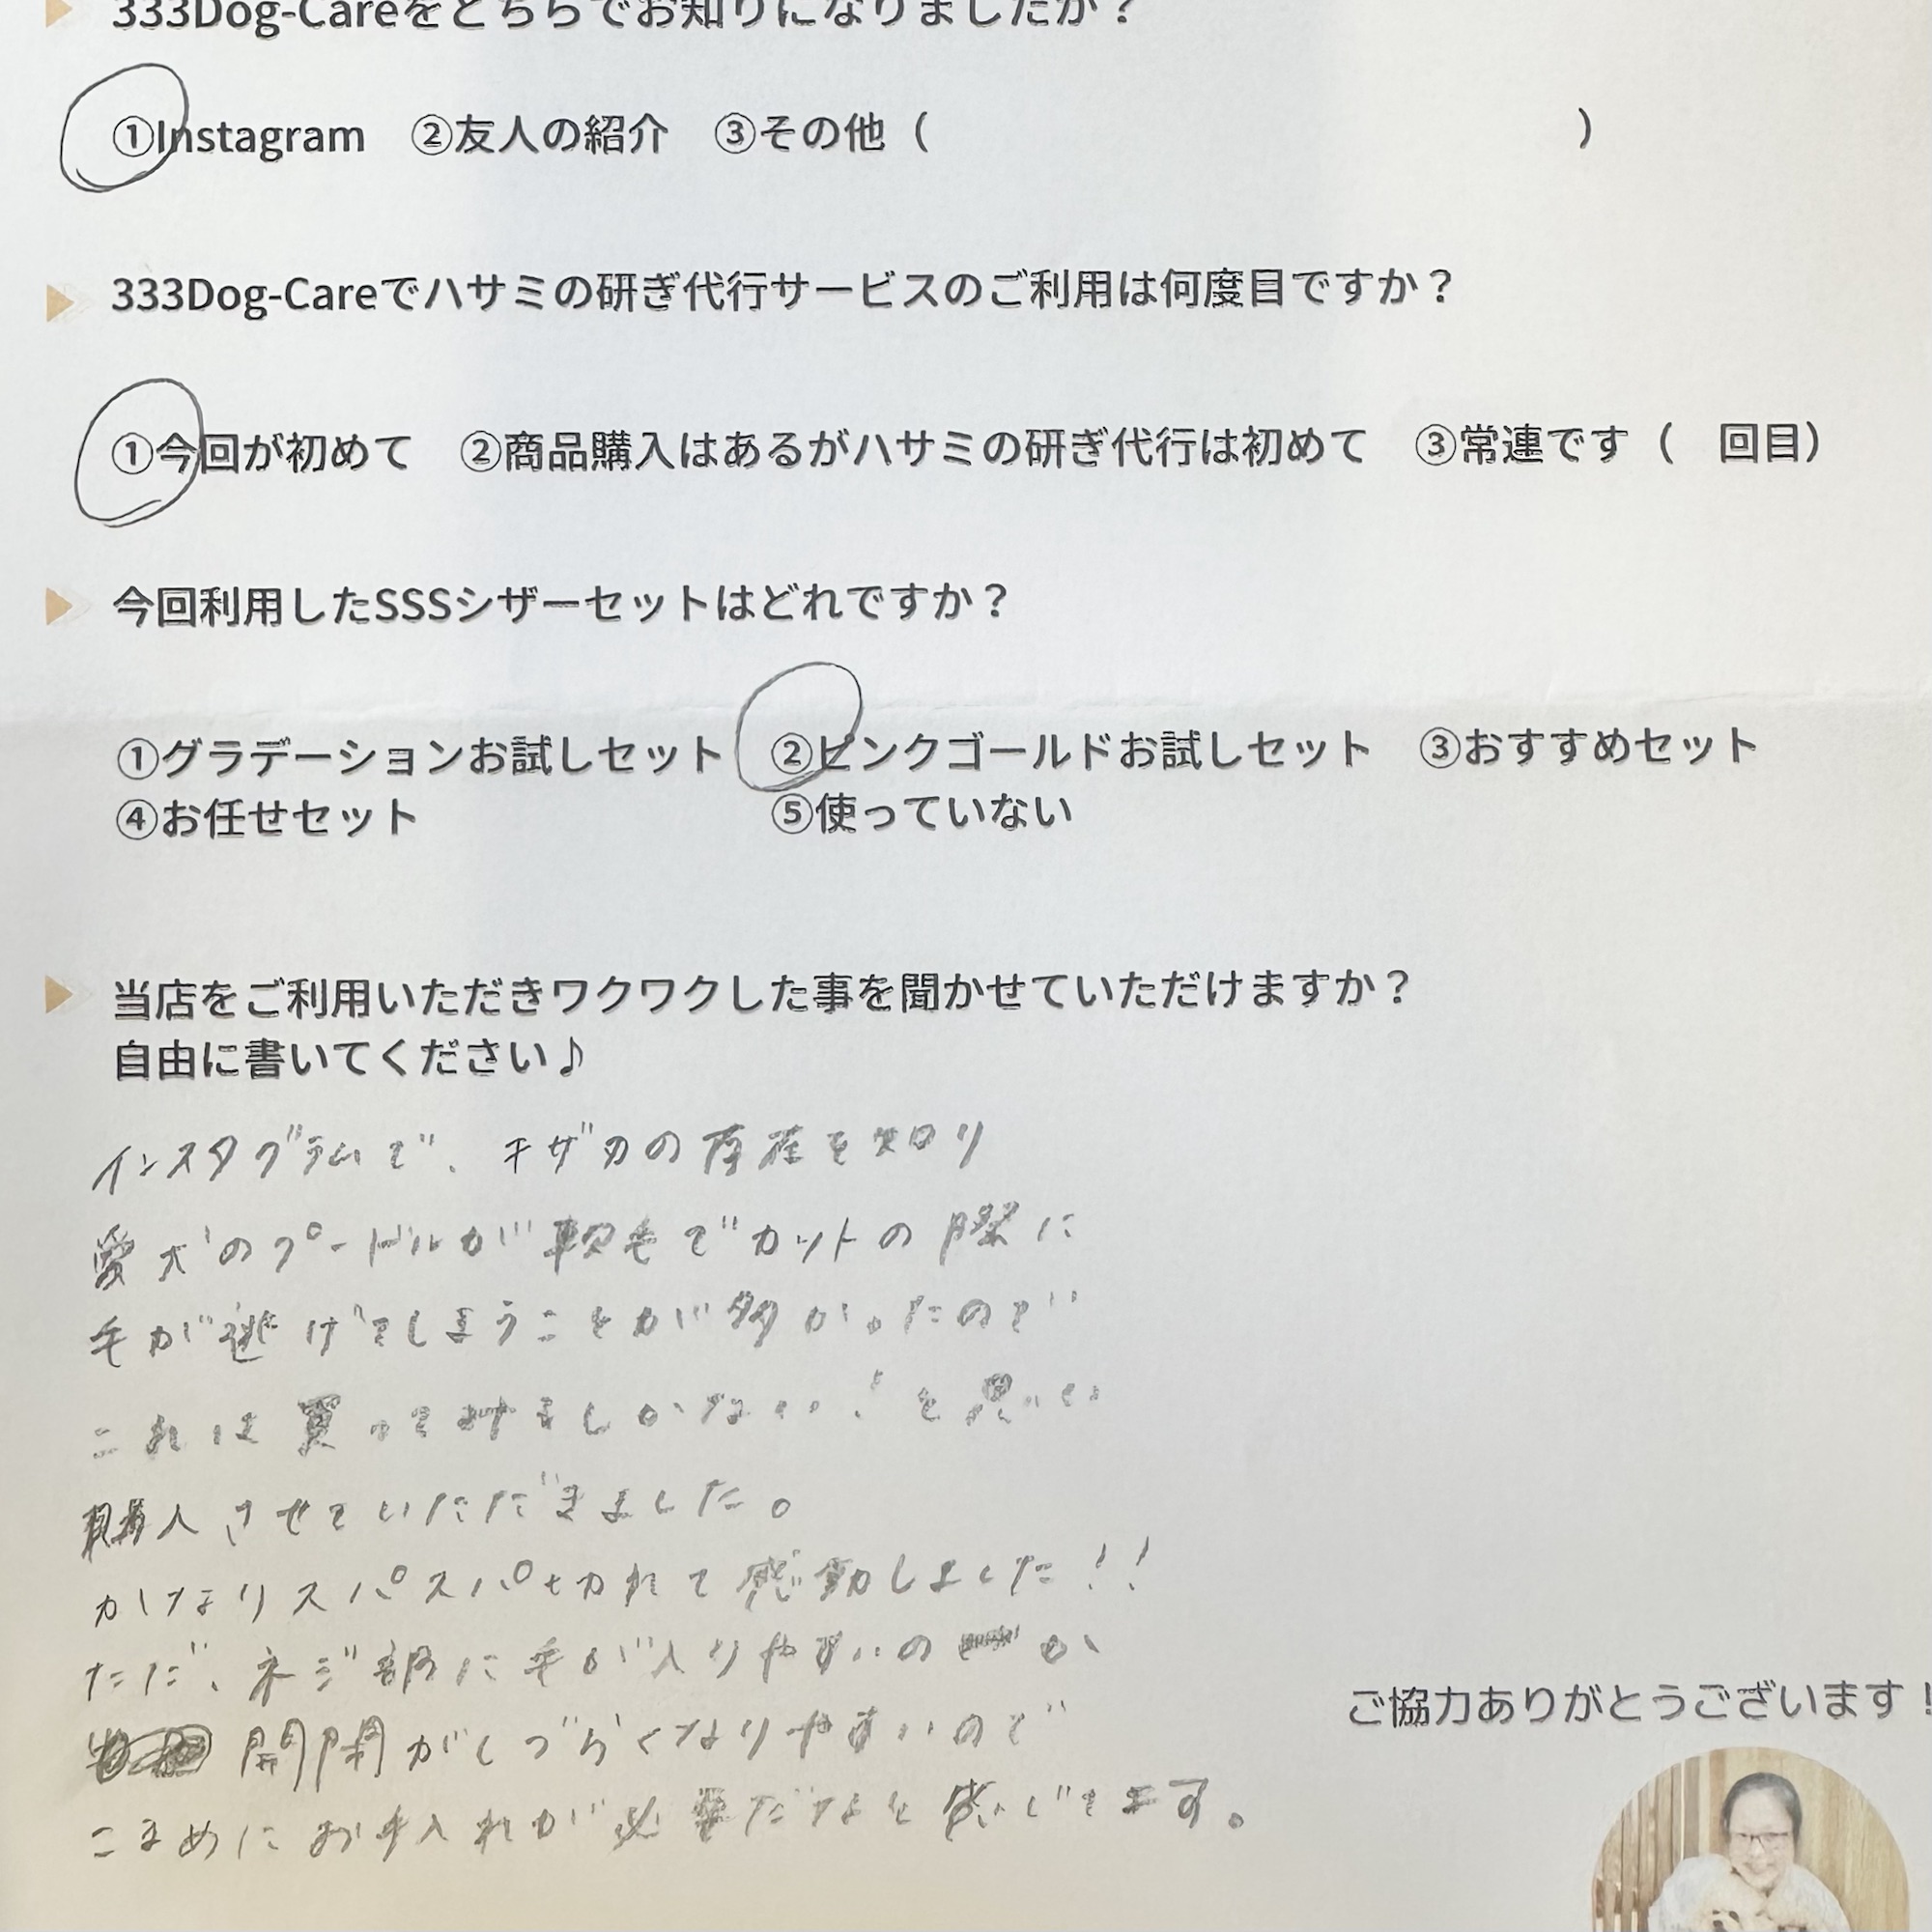 333Dog-Careをどちらでお知りになりましたか？
①Instagram　②友人の紹介　③その他（　　　　　　　　）
333Dog-Careでハサミの研ぎ代行サービスのご利用は何度目ですか？
①今回が初めて　②商品購入はあるがハサミの研ぎ代行は初めて　③常連です（　回目）
今回利用したSSSシザーセットはどれですか？
①グラデーションお試しセット　②ピンクゴールドお試しセット　③おすすめセット
④お任せセット　⑤使っていない
当店をご利用いただきワクワクした事を聞かせていただけますか？
自由に書いてください♪
インスタグラムで、ギザ刃の存在を知り
愛犬のプードルが軟毛でカットの際に
毛が逃げてしまうことが多かったので
これは買ってみるしかない！と思い
購入させていただきました。
かなりスパスパ切れて感動しました！！
ただ、ネジ部に毛が入りやすいのか
開閉がしづらくなりやすいので
こまめにお手入れが必要だなと感じてます。
ご協力ありがとうございます！